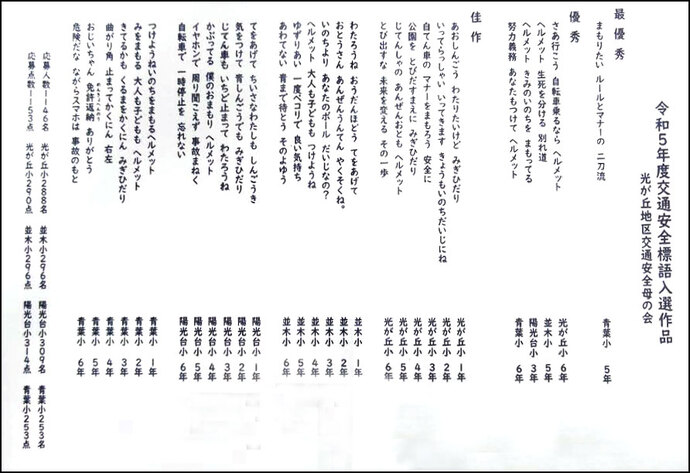 令和5年度交通安全標語入選作品
光が丘地区交通安全母の会
最優秀
まもりたい ルールとマナーの 二刀流 青葉小 5年
優秀
さあ行こう 自転車乗るなら ヘルメット 光が丘小 6年
ヘルメット 生死を分ける 別れ道 並木小 5年
ヘルメット きみのいのちを まもってる 陽光台小 3年
努力義務 あなたもつけて ヘルメット 青葉小 6年
佳作
あおしんごう わたりたいけど みぎひだり 光が丘小 1年
いってらっしゃい いってきます きょうもいのちだいじにね 光が丘小 2年
自てん車の マナーをまもろう 安全に 光が丘小 3年
公園を とびだすまえに みぎひだり 光が丘小 4年
じてんしゃの あんぜんおとも ヘルメット 光が丘小 5年
とび出すな 未来を変える その一歩 光が丘小 6年
わたろうね おうだんほどう てをあげて 並木小 1年
おとうさん あんぜんうんてん やくそくね。 並木小 2年
いのちより あなたのボール だいじなの? 並木小 3年
ヘルメット 大人も子どもも つけようね 並木小 4年
ゆずりあい 一度ペコリで 良い気持ち 並木小 5年
あわてない 青まで待とう そのよゆう 並木小 6年
てをあげて ちいさなわたしも しんごうき 陽光台小 1年
気をつけて 青しんごうでも みぎひだり 陽光台小 2年
じてん車も いちど止まって わたろうね 陽光台小 3年
かぶってる 僕のおまもり ヘルメット 陽光台小 4年
イヤホンで 周り聞こえず 事故まねく 陽光台小 5年
自転車で 一時停止を 忘れない 陽光台小 6年
つけようねいのちをまもるヘルメット 青葉小 1年
みをまもる 大人も子どもも ヘルメット 青葉小 2年
きてるかも くるまをかくにん みぎひだり 青葉小 3年
曲がり角 止まってかくにん 右左 青葉小 4年
おじいちゃん 免許返納 ありがとう 青葉小 5年
危険だな ながらスマホは 事故のもと 青葉小 6年
応募人数1146名 光が丘小288名 並木小296名 陽光台小309名 青葉小253名
応募点数1153点 光が丘小290点 並木小296点 陽光台小314点 青葉小253点